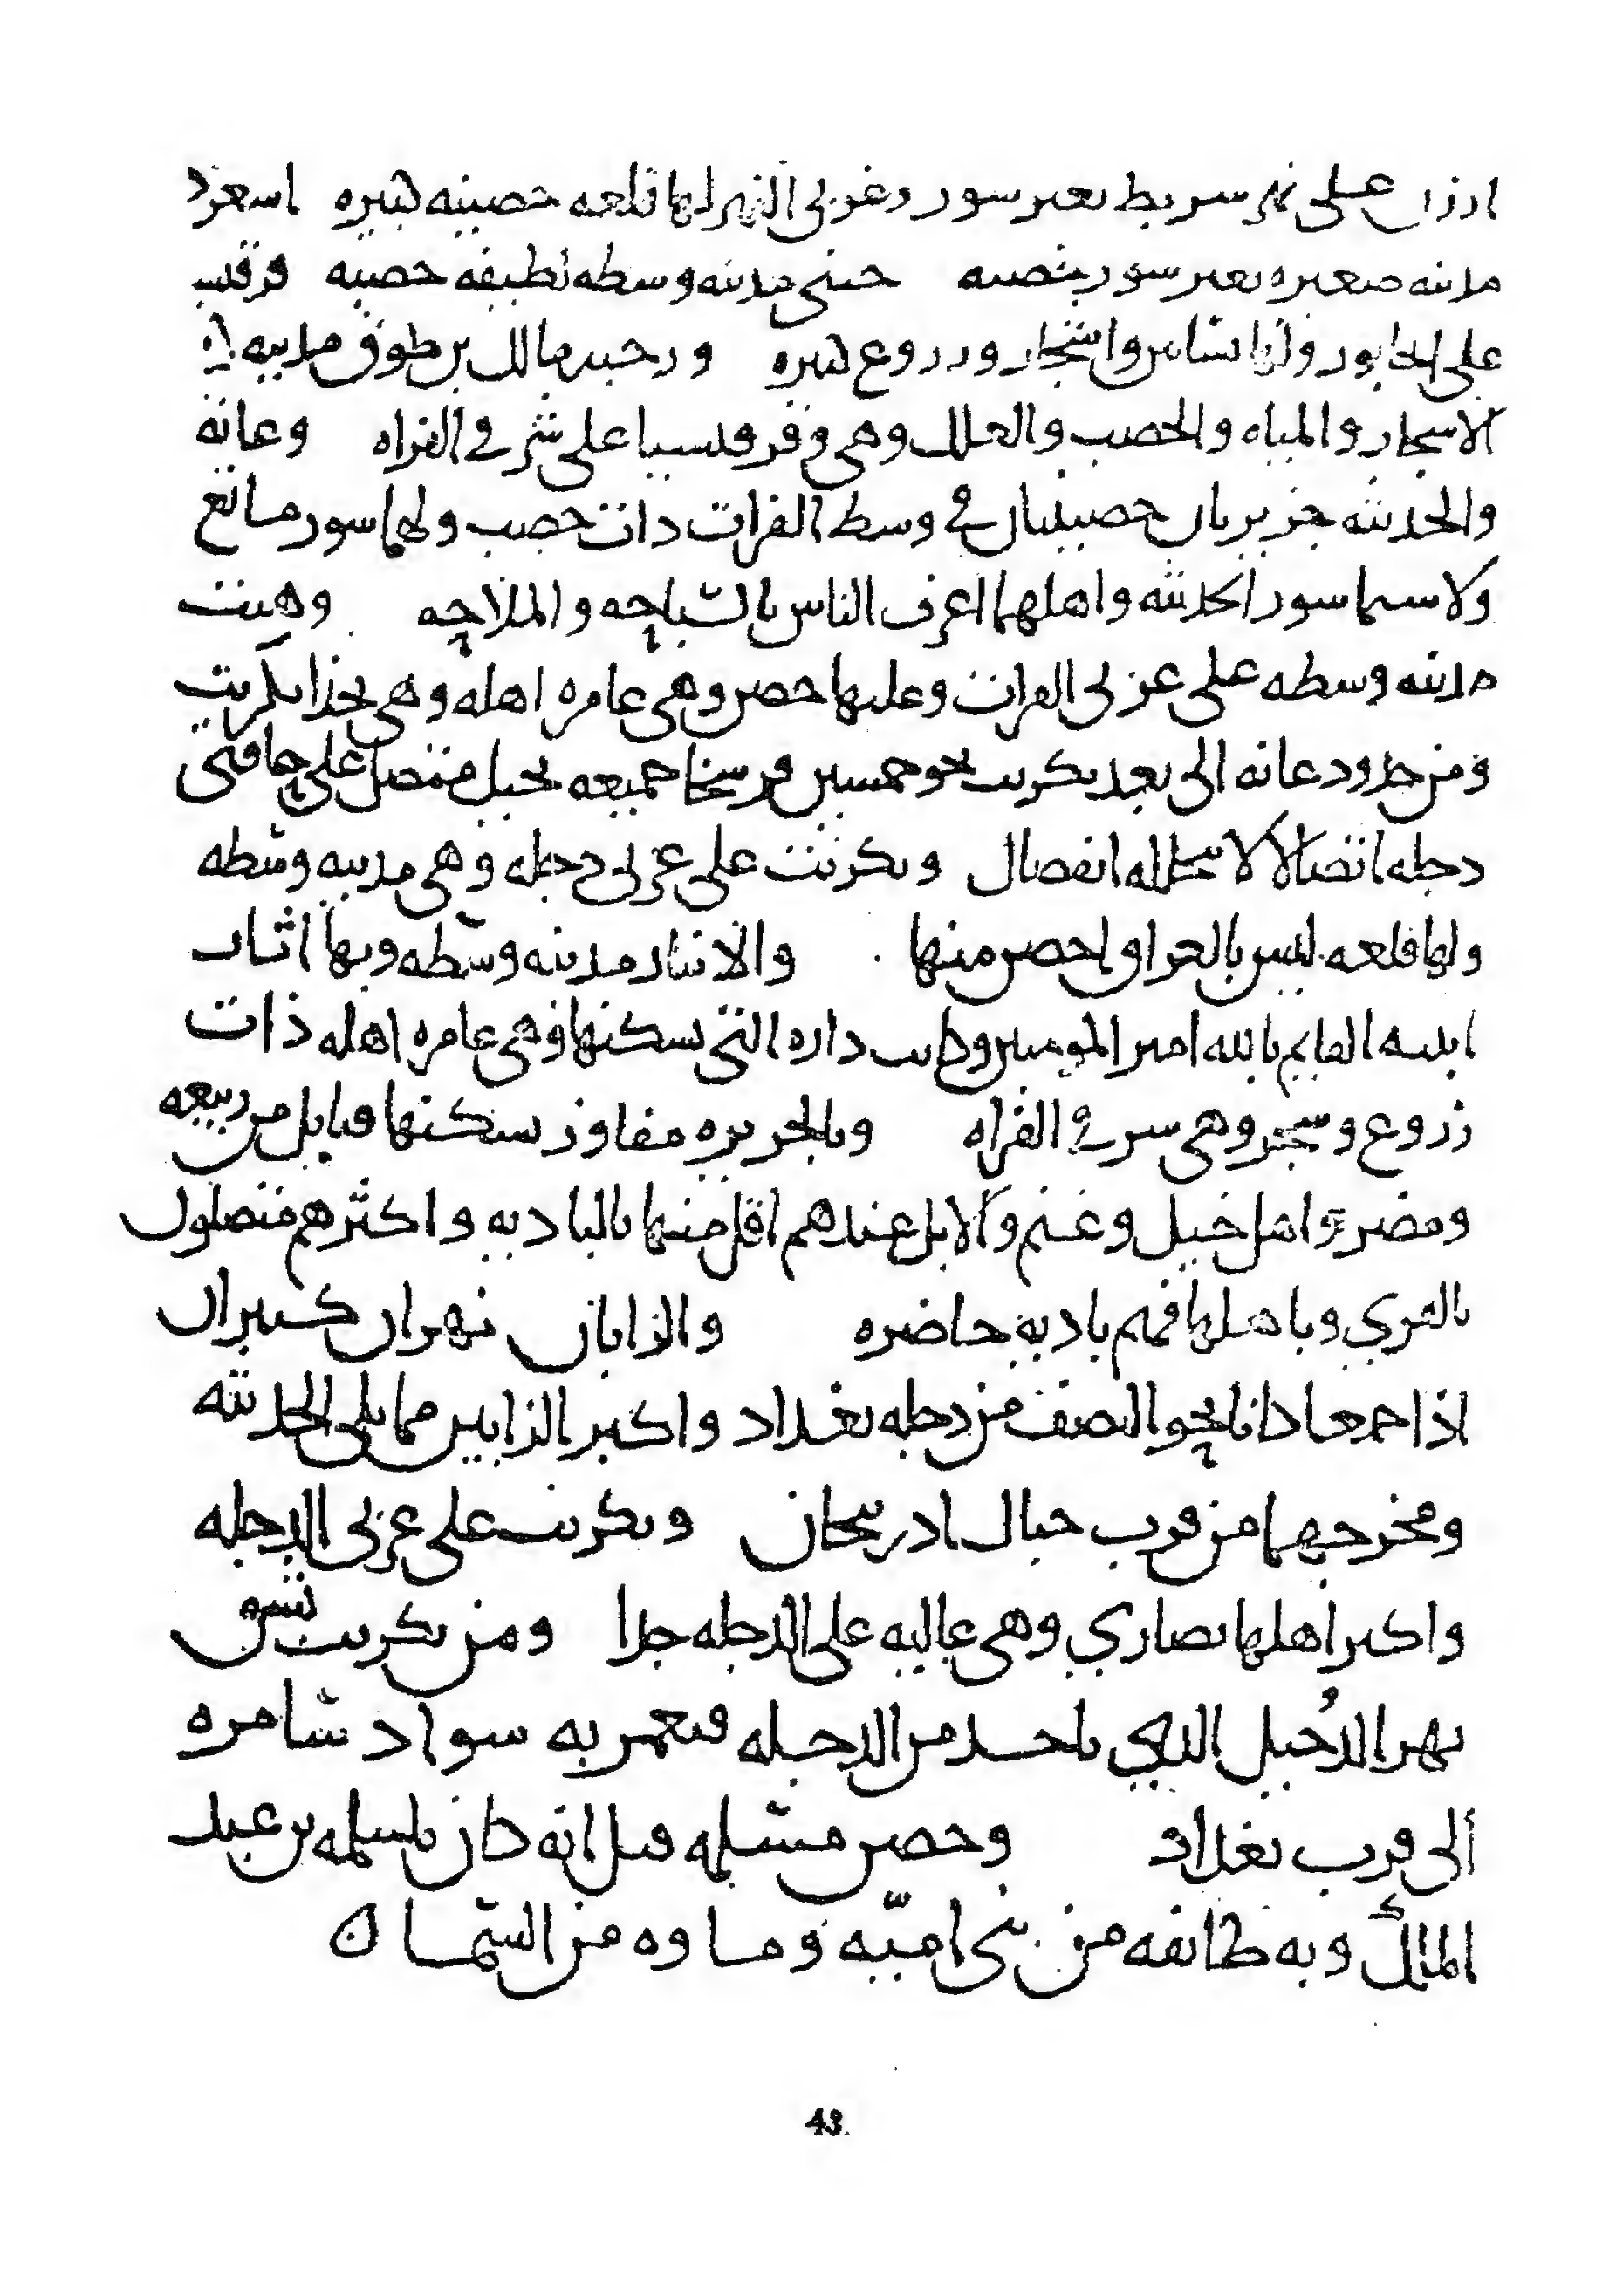 ارزن على نهر سربط بغير سور وغربي النهر لها قلعه حصينه كبيره اسعرد
مدينه صغيره بغير سور حصينه حيني مدينه وسطه نظيفه حصينه قرقيسيا
على الخابور ولها بساتين واشجار وزروع كثيره ورحبه مالك بن طوق مدينه كثيره
الاشجار والمياه والخصب والغلل وهي وقرقيسيا على شرقي الفراه وعانه
والحديثه جزيرتان حصينتان في وسط الفرات ذات خصب ولهما سور مانع
ولا سيما سور الحديثه واهلهما اعرف الناس بالسباحه والملاحه وهيت
مدينه وسطه على غربي الفرات وعليها حصن وهي عامره اهله وهي بحذا تكريت
ومن حدود عانه الى بعد تكريت نحو خمسين فرسخا جميعه بجبل متصل على حافتي
دجله اتصالا لا يتخلله انفصال وتكريت على غربي دجله وهي مدينه وسطه
ولها قلعه ليس بالعراق احصن منها والانبار مدينه وسطه وبها اثار
ابنيه القايم بالله امير المومنين وكانت داره التي يسكنها وهي عامره اهله ذات
زروع وشجر وهي شرقي الفراه وبالجزيره مفاوز يسكنها قبايل من ربيعه
ومضر واهل خيل وغنم والابل عندهم اقل منها بالباديه واكثرهم متصلون
بالقري وباهلها فهم باديه حاضره والزابان نهران كبيران
اذا جمعا كانا نحو النصف من دجله بغداد واكبر الزابين مما يلي الحديثه
ومخرجهما من قرب جبال ادربيجان وتكريت على غربي الدجله
واكثر اهلها نصاري وهي عاليه على الدجله جدا ومن تكريت يشق
نهر الدُجيل الذي ياخذ من الدجله فيعمر به سواد سامره
الى قرب بغداد وحصن مسلمه قيل انه كان لمسلمه بن عبد
الملك وبه طائفه من بني اميّه وماوه من السما
43